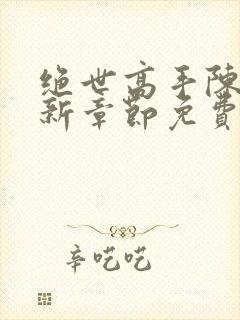 绝世高手陈
新章节免费
辛吃吃